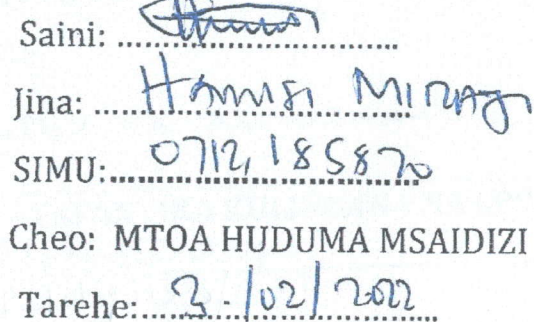 Saini: ..........
Jina: Hamisi Miraji
SIMU: 0712, 185870
Cheo: MTOA HUDUMA MSAIDIZI
Tarehe: 3./02/2022